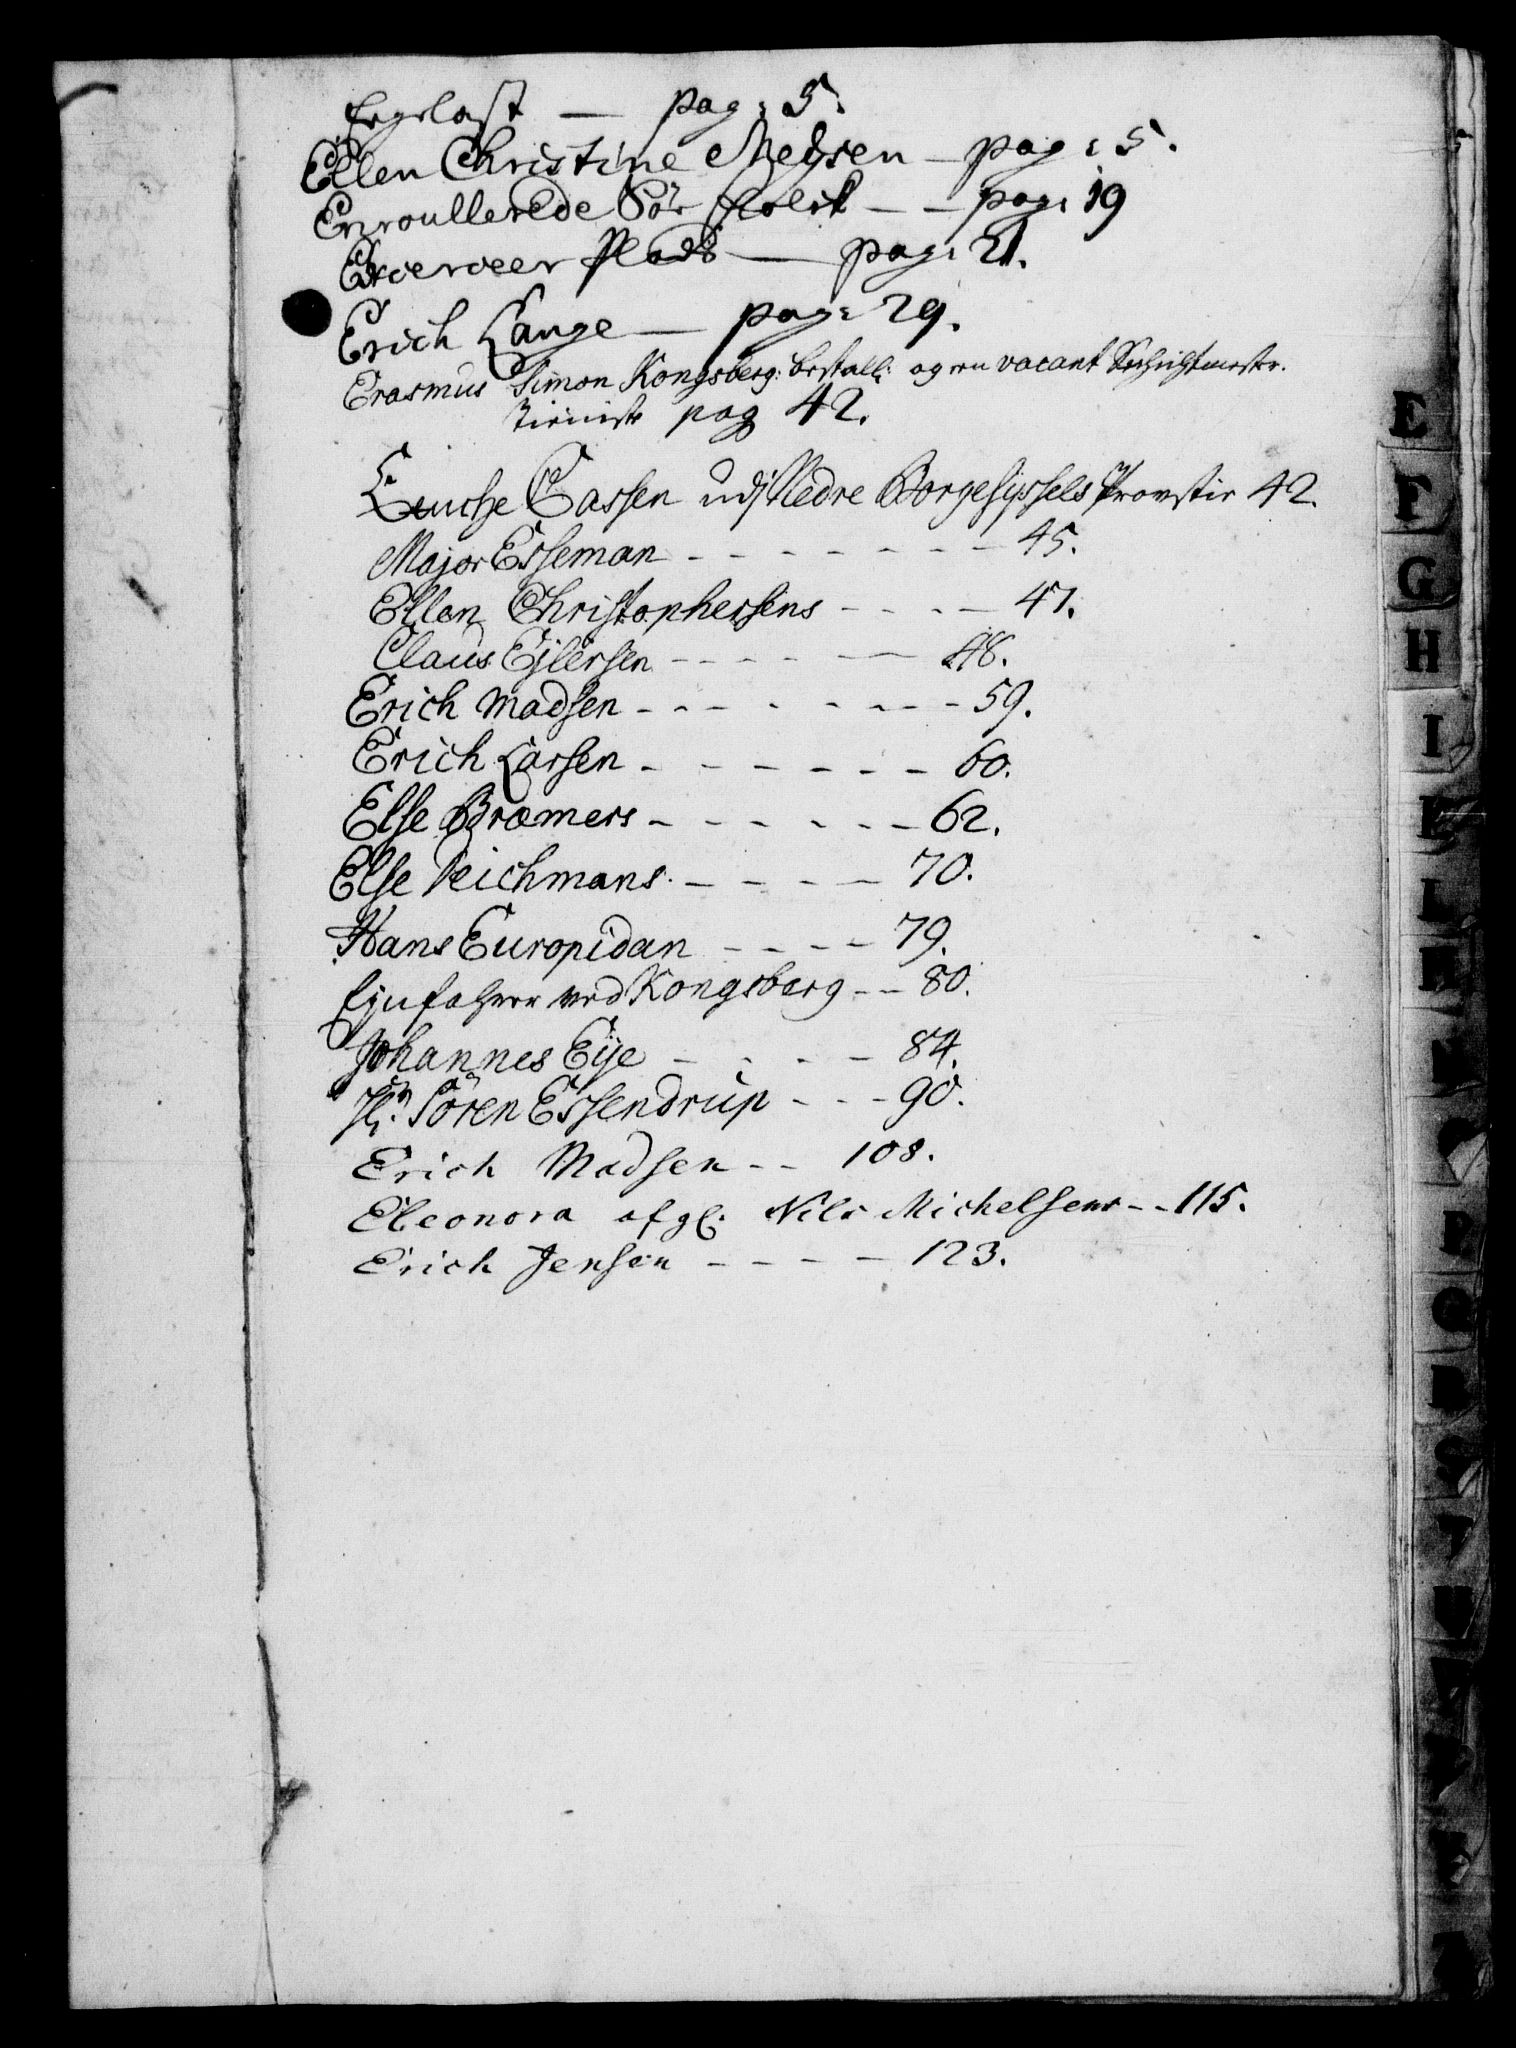 Egelast — pag: 5.
Ellen Christine Meÿsen — pag: 5.
Enroullerede Söe folck — — pag: 19
Exerceer Plads — pag: 21.
Erich Lange — pag: 29.
Erasmus Simon Kongsberg: bestall: og en vacant Schichtmestr.
tieniste pag 42.
Encke Cassen udj Nedre Borgesÿssels Provstie 42.
Major Esseman - - - - - - - - 45.
Ellen Christophersens - - - - 47.
Claus Ejlersen - - - - - 48.
Erich Madsen - - - - - - - - 59.
Erich Larsen - - - - - - - 60.
Else Bræmers - - - - - - - 62.
Else Deichmans - - - - 70.
Hans Europidan - - - - 79.
ved Kongsberg - - 80.
Johannes Eÿe - - - - - 84.
Hr. Sören Essendrup - - - 90.
Erich Madsen - - 108.
Eleonora afgl. Nils Michelsens - - 115.
Erich Jensen - - - - - 123.
E
F
G
H
I
K
L
M
N
O
P
Q
R
S
T
U